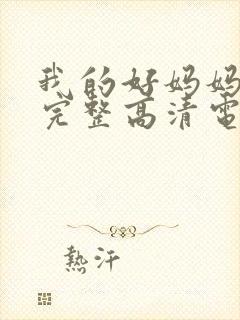 我的好妈妈
完整高清电
熱汗